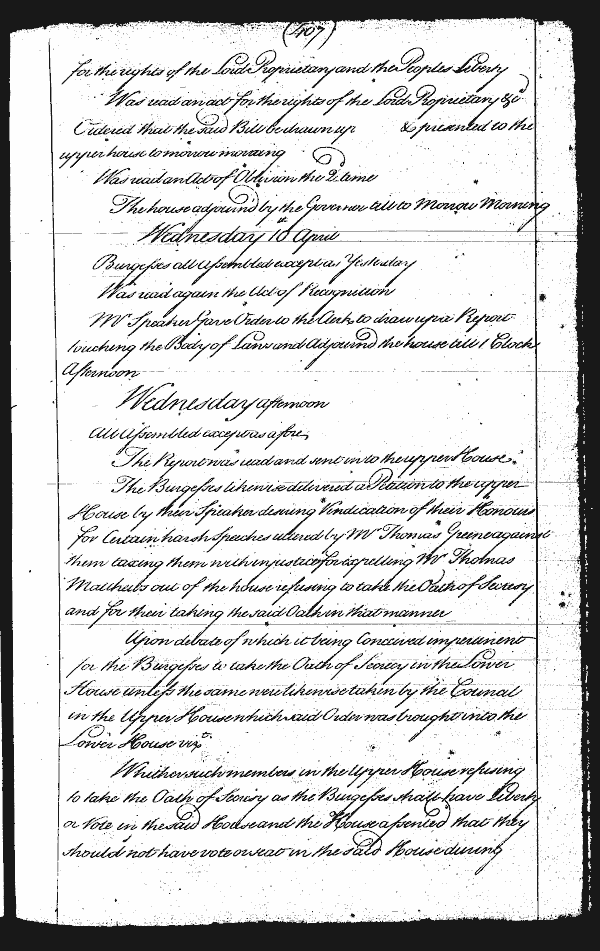 (407)
for the rights of the Lord Proprietary and the Peoples Liberty
Was read an act for the rights of the Lord Proprietary &c
Ordered that the said Bill be drawn up & presented to the
upper house to morrow morning
Was read an Act of Oblivion the 2d time
The house adjourn'd by the Governor till to Morrow Morning
Wednesday 10th April
Burgesses all assembled except as Yesterday
Was read again the Act of Recognition
Mr Speaker Gave Order to the Clerk to draw up a Report
touching the Body of Laws and Adjourn'd the house till 1 Clock
Afternoon
Wednesday afternoon
All Assembled except as afore,
The Report was read and sent in to the upper House.
The Burgesses likewise delivered a Petition to the upper
House by their Speaker desiring Vindication of their Honours
for Certain harsh Speeches uttered by Mr Thomas Greene against
them taxing them with injustice for expelling Mr Thomas
Matthews out of the house refusing to take the Oath of Secresy
and for their taking the said Oath in that manner
Upon debate of which it being Conceived impertinent
for the Burgesses to take the Oath of Secresy in the Lower
House unless the same were likewise taken by the Council
in the Upper House which said Order was brought into the
Lower House vizt.
Whither such members in the Upper House refusing
to take the Oath of Secresy as the Burgesses shall have Liberty
or Vote in the said House and the House assented that they
should not have vote or seat in the said House during